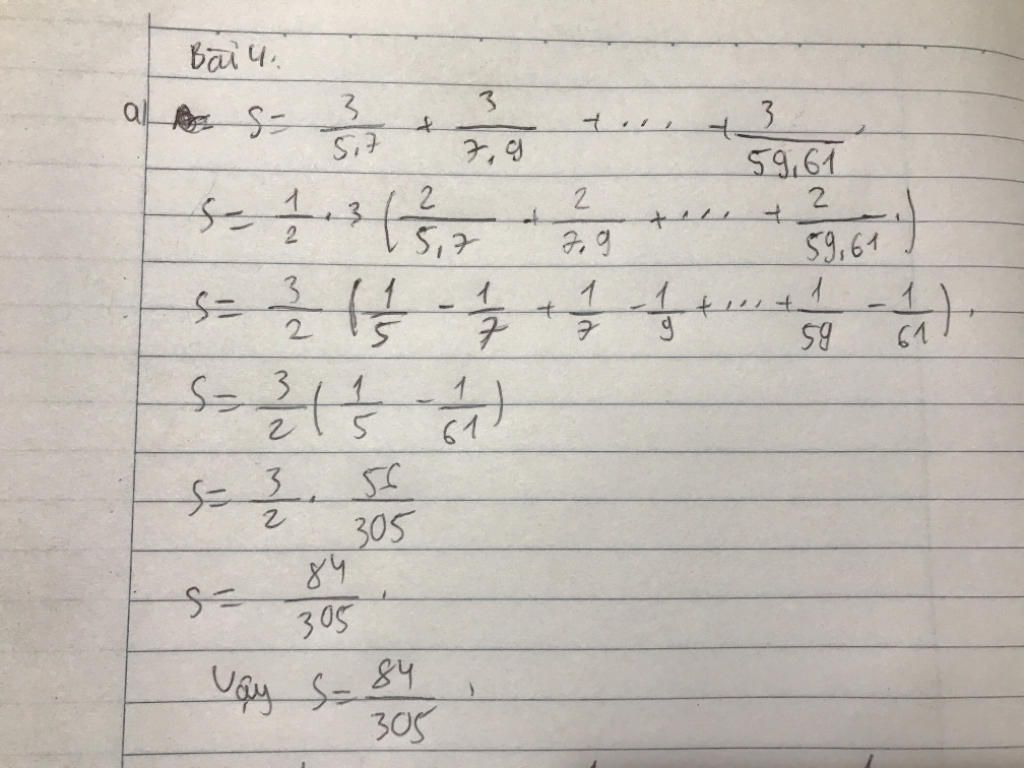 Bài 4.
a) S = 3/5.7 + 3/7.9 + ... + 3/59.61.
S = 1/2 . 3 (2/5.7 + 2/7.9 + ... + 2/59.61.)
S = 3/2 (1/5 - 1/7 + 1/7 - 1/9 + ... + 1/59 - 1/61).
S = 3/2 (1/5 - 1/61)
S = 3/2 . 56/305
S = 84/305.
Vậy S = 84/305.